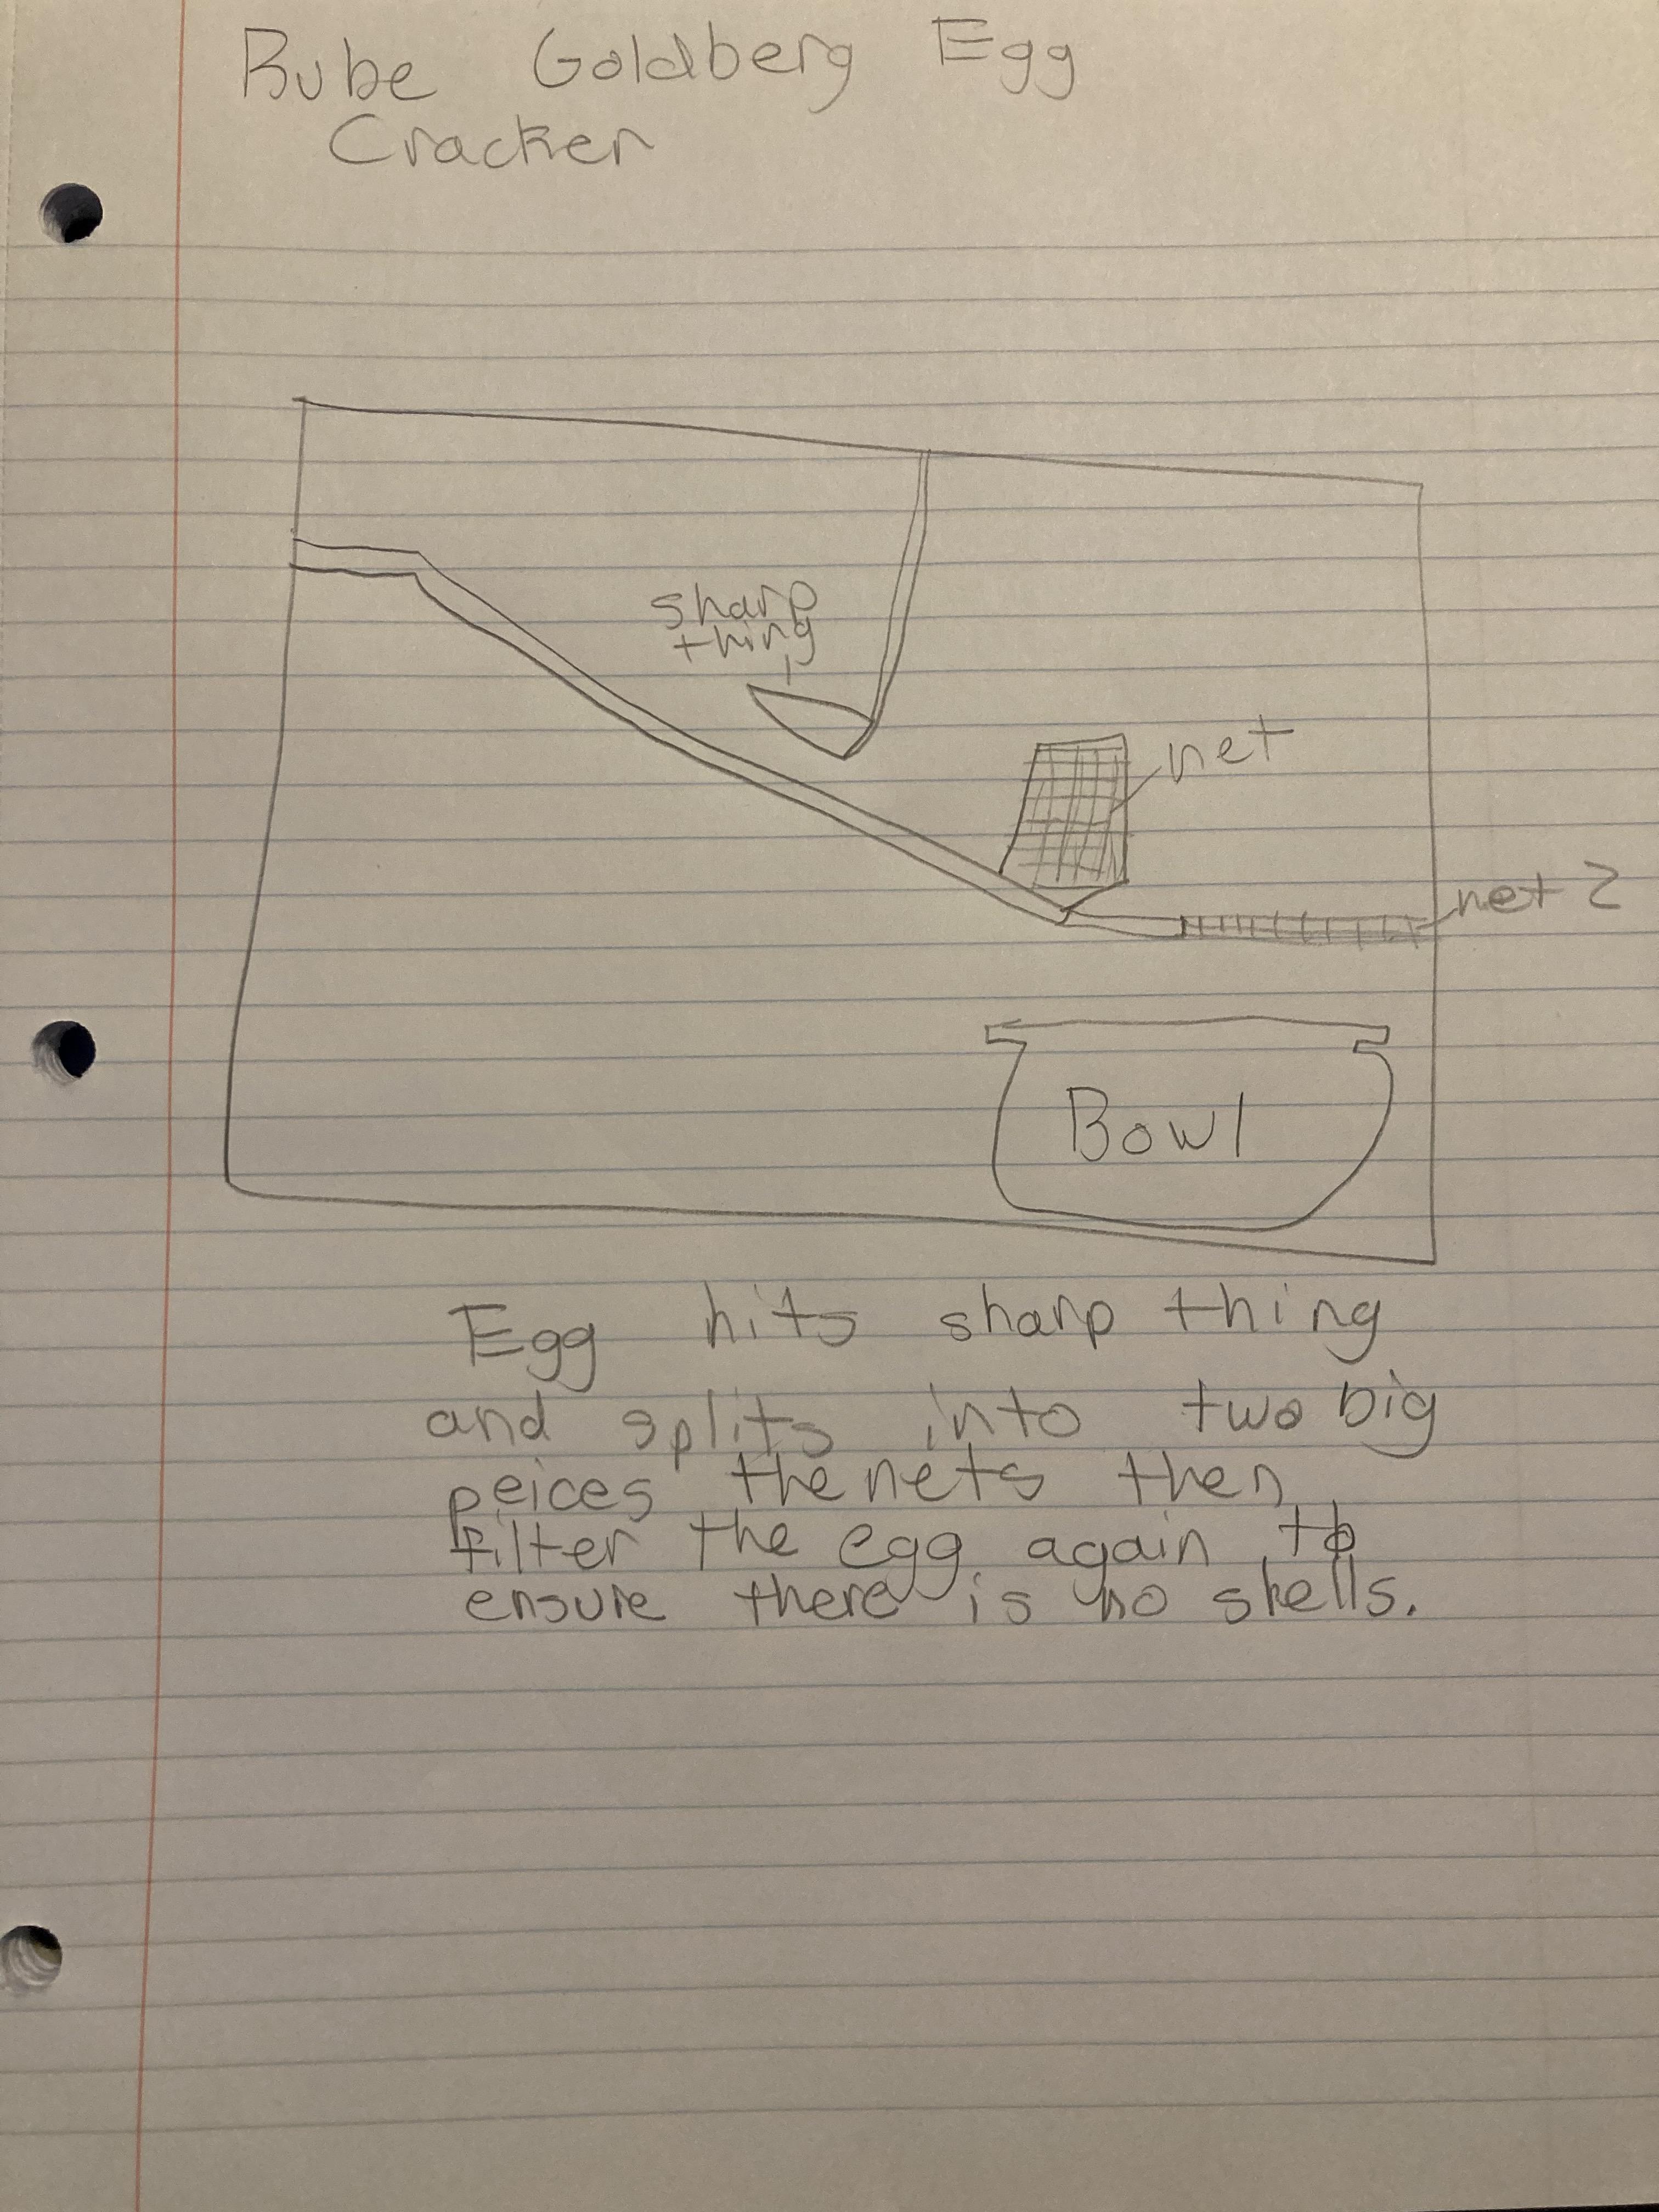 Rube Goldberg Egg
Cracker
sharp
thing
net
net 2
Bowl
Egg hits sharp thing
and splits into two big
peices the nets then
filter the egg again to
ensure there is no shells.